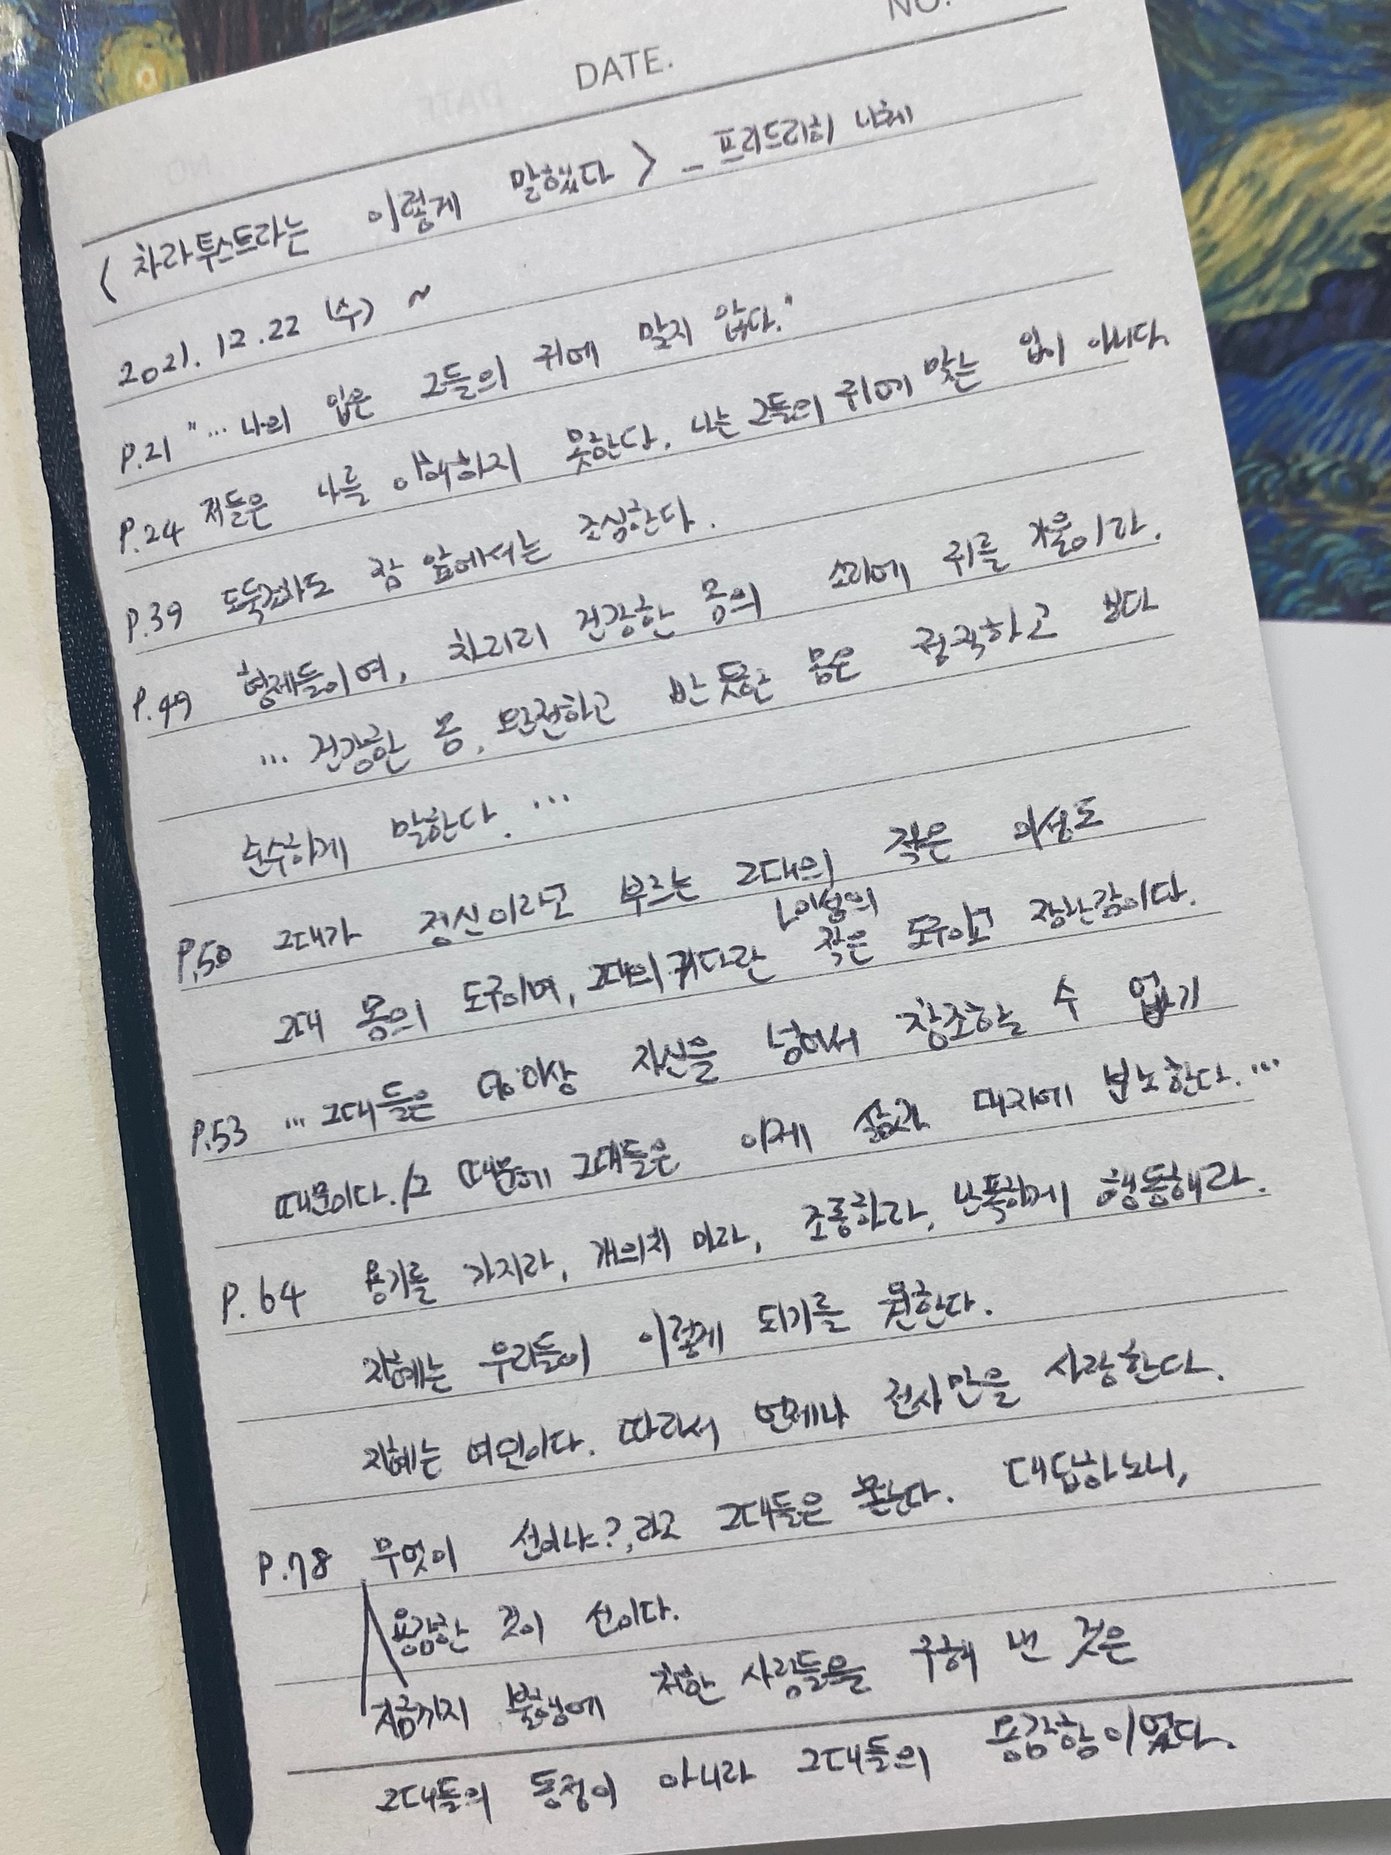 NO.
DATE.
< 차라투스트라는 이렇게 말했다 > _ 프리드리히 니체
2021. 12. 22 (수) ~
P.21 "… 나의 입은 그들의 귀에 맞지 않다."
P.24 저들은 나를 이해하지 못한다. 나는 그들의 귀에 맞는 입이 아니다.
P.39 도둑조차도 잠 앞에서는 조심한다.
P.49 형제들이여, 차라리 건강한 몸의 소리에 귀를 기울이라.
… 건강한 몸, 완전하고 반듯한 몸은 정직하고 보다
순수하게 말한다. …
P.50 그대가 정신이라고 부르는 그대의 작은 이성도
그대 몸의 도구이며, 그대의 커다란 작은 도구이고 장난감이다.
ㄴ이성의
P.53 … 그대들은 더이상 자신을 넘어서 창조할 수 없기
때문이다. / 그 때문에 그대들은 이제 삶과 대지에 분노한다. …
P.64 용기를 가지라, 개의치 마라, 조롱하라, 난폭하게 행동해라.
지혜는 우리들이 이렇게 되기를 원한다.
지혜는 여인이다. 따라서 언제나 전사만을 사랑한다.
P.78 무엇이 선이냐?, 라고 그대들은 묻는다. 대답하노니,
용감한 것이 선이다.
지금까지 불행에 처한 사람들을 구해 낸 것은
그대들의 동정이 아니라 그대들의 용감함이었다.